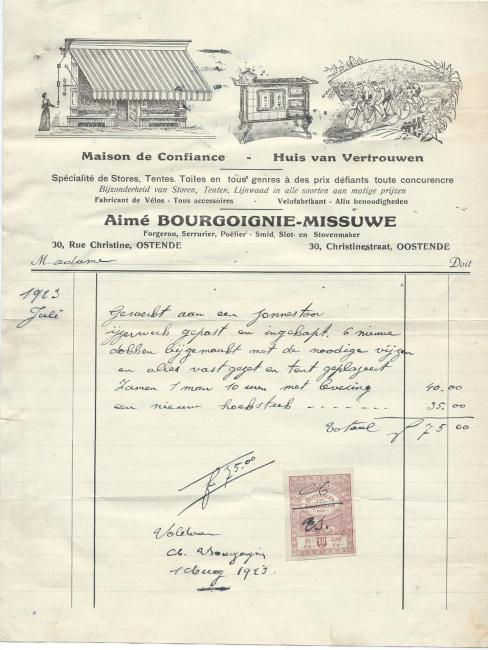 Maison de Confiance - Huis van Vertrouwen
Spécialité de Stores, Tentes, Toiles en tous genres à des prix défiants toute concurence
Bijzonderheid van Storen, Tenten, Lijnwaad in alle soorten aan matige prijzen
Fabricant de Vélos - Tous accessoires - Velofabrikant - Alln benoodigheden
Aimé BOURGOIGNIE-MISSUWE
Forgeron, Serrurier, Poêlier - Smid, Slot- en Stovenmaker
30, Rue Christine, OSTENDE 30, Christinestraat, OOSTENDE
Madame Doit
1923
Juli
Gewerkt aan een zonnestoor
ijzerwerk gepast en ingekapt. 6 nieuwe
dobben bijgemaakt met de noodige vijzen
en alles vast gezet en tent geplazeert
Zamen 1 man 10 uren met levering 40.00
een nieuw hoekstuk ------- 35.00
Totaal f 75 00
f 75.00
Voldaan
1923.